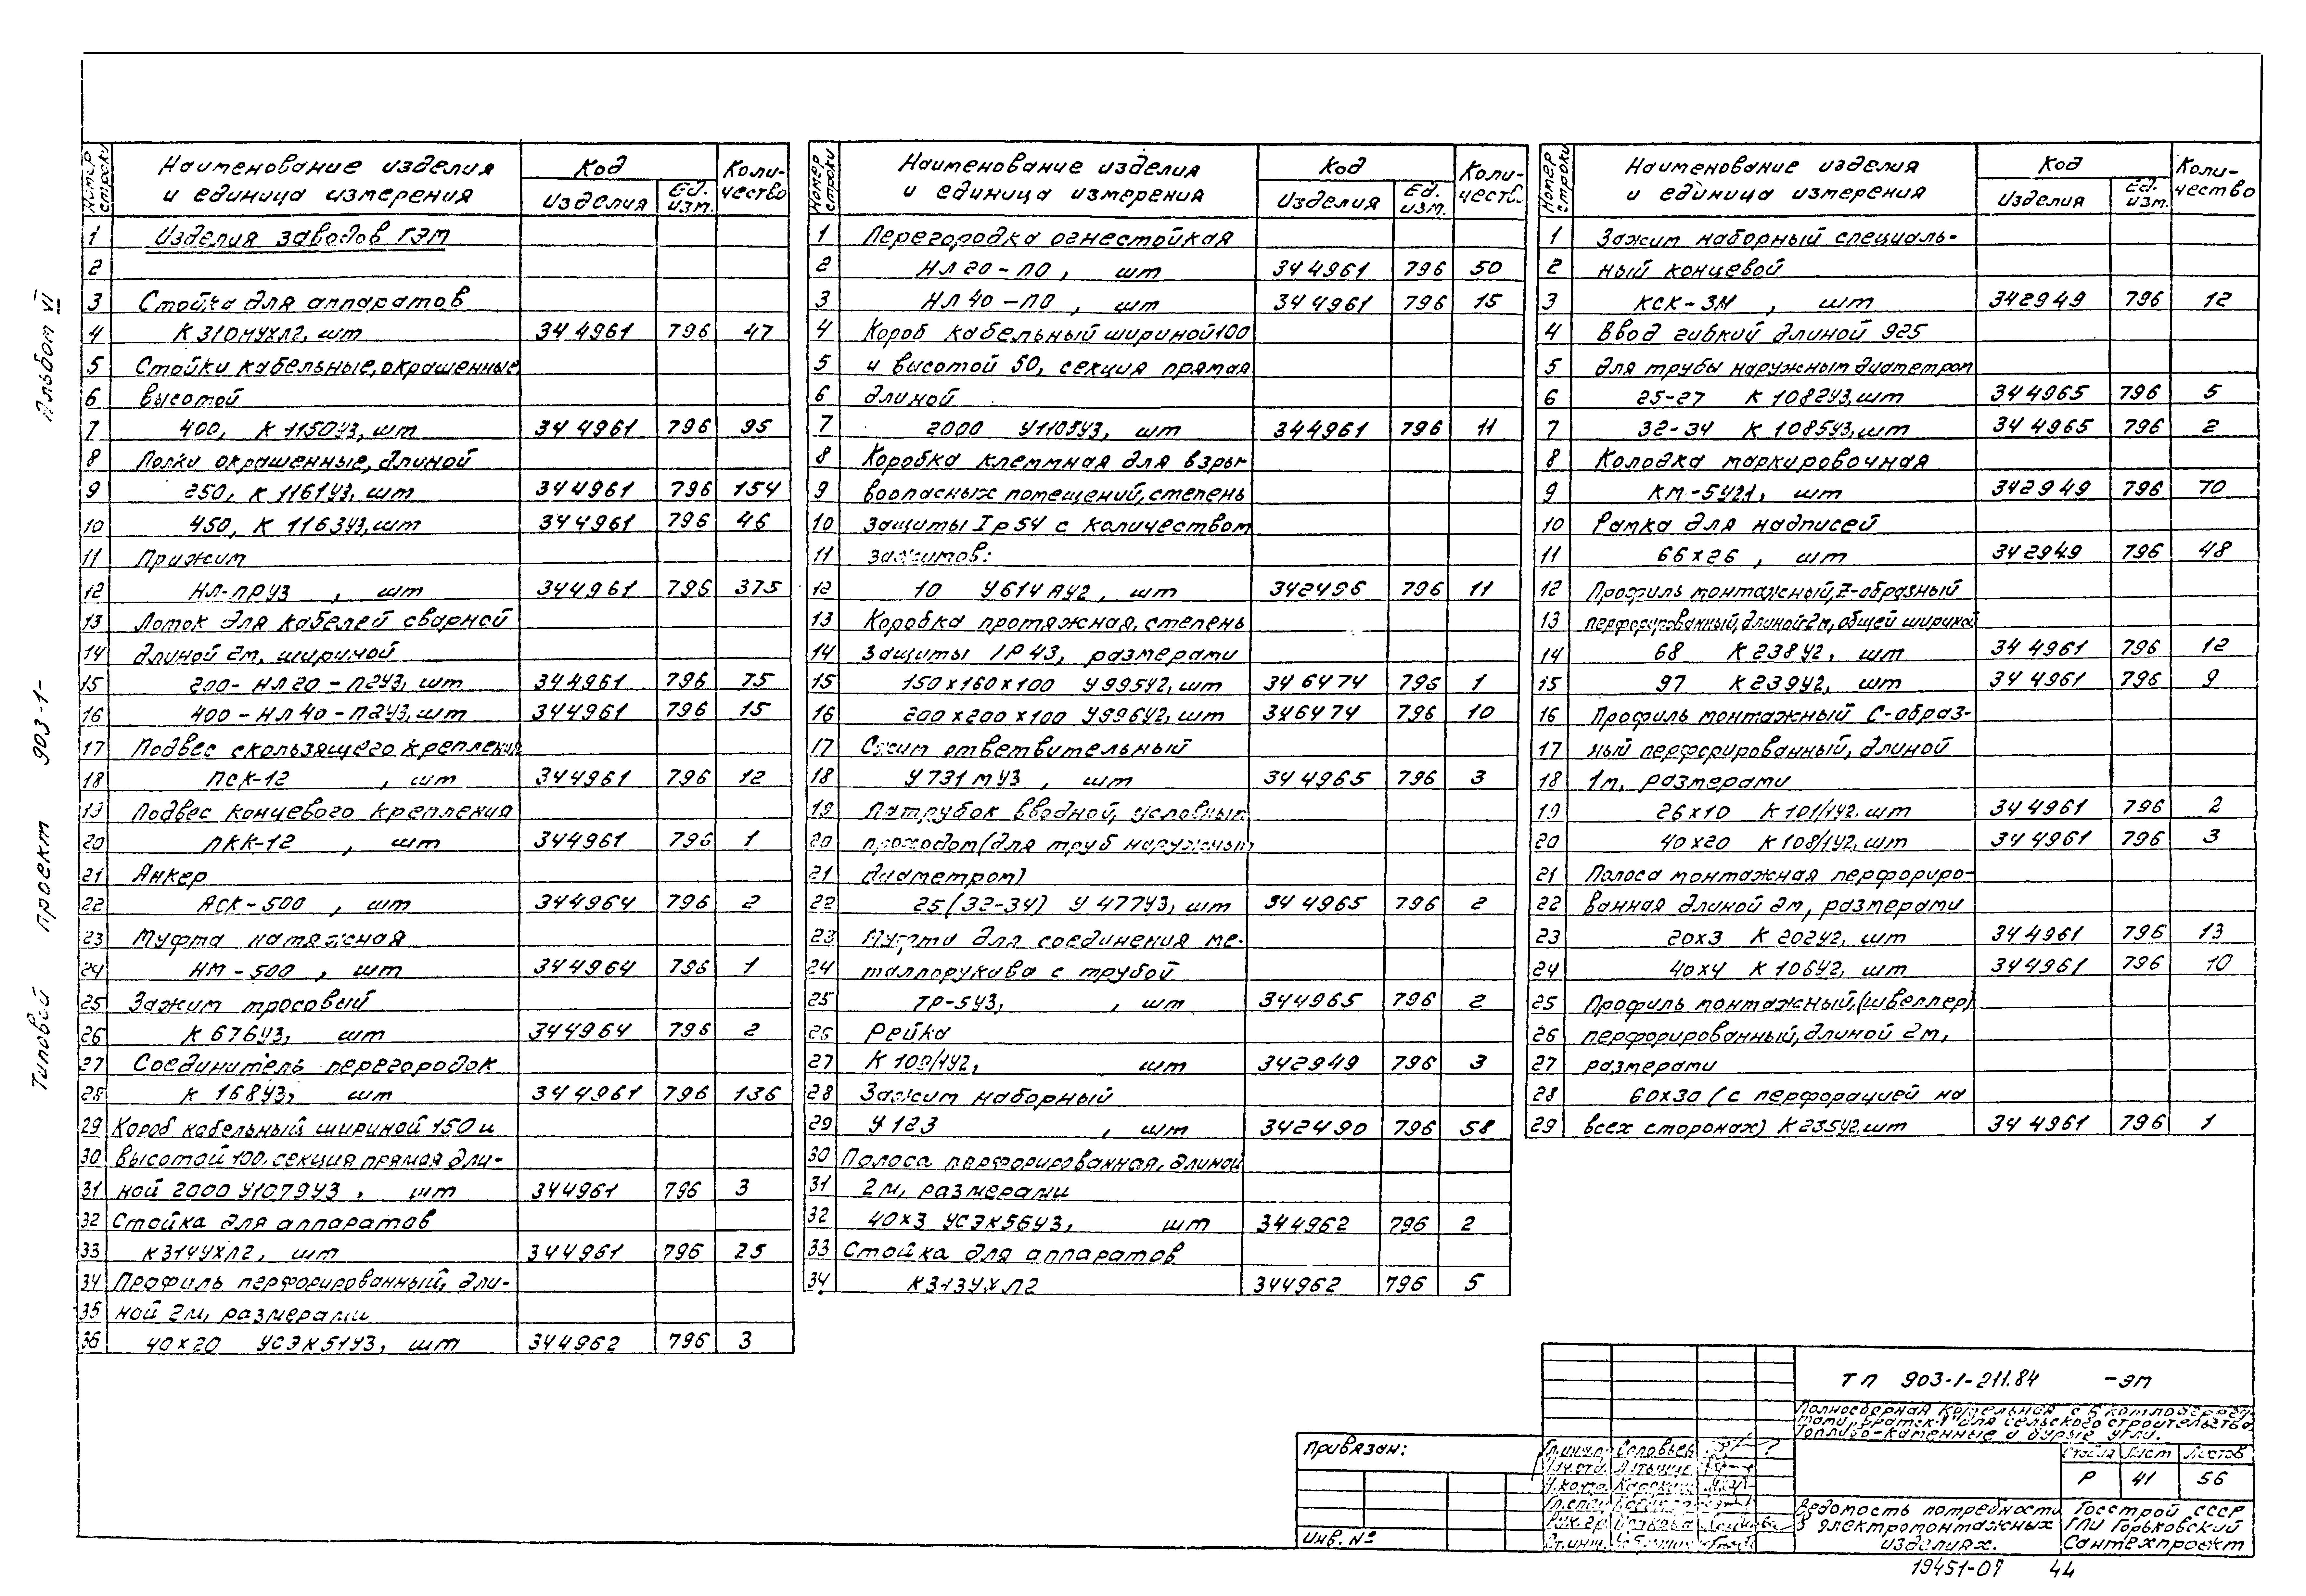 Альбом VI
Типовой проект 903-1-
Номер строки | Наименование изделия и единица измерения | Код | Коли-чество
Изделия | Ед. изм.
1 Изделия заводов ГЭМ
2
3 Стойка для аппаратов
4 К310МУХЛ2, шт 344961 796 47
5 Стойки кабельные, окрашенные
6 высотой
7 400, К 1150У3, шт 344961 796 95
8 Полки окрашенные, длиной
9 250, К 1161У3, шт 344961 796 154
10 450, К 1163У3, шт 344961 796 46
11 Прижим
12 НЛ-ПРУ3, шт 344961 796 375
13 Лоток для кабелей сварной
14 длиной 2м, шириной
15 200-НЛ20-П2У3, шт 344961 796 75
16 400-НЛ40-П2У3, шт 344961 796 15
17 Подвес скользящего крепления
18 ПСК-12, шт 344961 796 12
19 Подвес концевого крепления
20 ПКК-12, шт 344961 796 1
21 Анкер
22 АСК-500, шт 344964 796 2
23 Муфта натяжная
24 НМ-500, шт 344964 796 1
25 Зажим тросовый
26 К 676У3, шт 344964 796 2
27 Соединитель перегородок
28 К 168У3, шт 344961 796 136
29 Короб кабельный шириной 150 и
30 высотой 100, секция прямая дли-
31 ной 2000 У1079У3, шт 344961 796 3
32 Стойка для аппаратов
33 К314УХЛ2, шт 344961 796 25
34 Профиль перфорированный, дли-
35 ной 2м, размерами
36 40х20 УСЭК51У3, шт 344962 796 3
Номер строки | Наименование изделия и единица измерения | Код | Коли-чество
Изделия | Ед. изм.
1 Перегородка огнестойкая
2 НЛ20-ПО, шт 344961 796 50
3 НЛ40-ПО, шт 344961 796 15
4 Короб кабельный шириной 100
5 и высотой 50, секция прямая
6 длиной
7 2000 У1105У3, шт 344961 796 11
8 Коробка клеммная для взры-
9 воопасных помещений, степень
10 защиты Iр54 с количеством
11 зажимов:
12 10 У614АУ2, шт 342496 796 11
13 Коробка протяжная, степень
14 защиты IР43, размерами
15 150х160х100 У995У2, шт 346474 796 1
16 200х200х100 У996У2, шт 346474 796 10
17 Сжим ответвительный
18 У731МУ3, шт 344965 796 3
19 Патрубок вводной, условным
20 проходом (для труб наружным
21 диаметром)
22 25(32-34) У 477У3, шт 344965 796 2
23 Муфта для соединения ме-
24 таллорукава с трубой
25 ТР-5У3, шт 344965 796 2
26 Рейка
27 К 109/1У2, шт 342949 796 3
28 Зажим наборный
29 У 123, шт 342490 796 58
30 Полоса перфорированная, длиной
31 2м, размерами
32 40х3 УСЭК56У3, шт 344962 796 2
33 Стойка для аппаратов
34 К313УХЛ2 344962 796 5
Номер строки | Наименование изделия и единица измерения | Код | Коли-чество
Изделия | Ед. изм.
1 Зажим наборный специаль-
2 ный концевой
3 КСК-3М, шт 342949 796 12
4 Ввод гибкий длиной 925
5 для трубы наружным диаметром
6 25-27 К 1082У3, шт 344965 796 5
7 32-34 К 1085У3, шт 344965 796 2
8 Колодка маркировочная
9 КМ-5У21, шт 342949 796 70
10 Рамка для надписей
11 66х26, шт 342949 796 48
12 Профиль монтажный, Z-образный
13 перфорированный, длиной 2м, общей шириной
14 68 К238У2, шт 344961 796 12
15 97 К239У2, шт 344961 796 9
16 Профиль монтажный С-образ-
17 ный перфорированный, длиной
18 1м, размерами
19 26х10 К101/1У2, шт 344961 796 2
20 40х20 К108/1У2, шт 344961 796 3
21 Полоса монтажная перфориро-
22 ванная длиной 2м, размерами
23 20х3 К 202У2, шт 344961 796 13
24 40х4 К 106У2, шт 344961 796 10
25 Профиль монтажный, (швеллер)
26 перфорированный, длиной 2м,
27 размерами
28 60х30 (с перфорацией на
29 всех сторонах) К235У2, шт 344961 796 1
Привязан:
Инв. №
ТП 903-1-211.84 -ЭМ
Полносборная котельная с 5 котлоагрега-
тами "Братск-1" для сельского строительства.
Топливо-каменные и бурые угли.
Гл.инж.пр. Соловьев
Стадия Лист Листов
Р 41 56
Ведомость потребности
в электромонтажных
изделиях.
Госстрой СССР
ГПИ Горьковский
Сантехпроект
19451-07 44